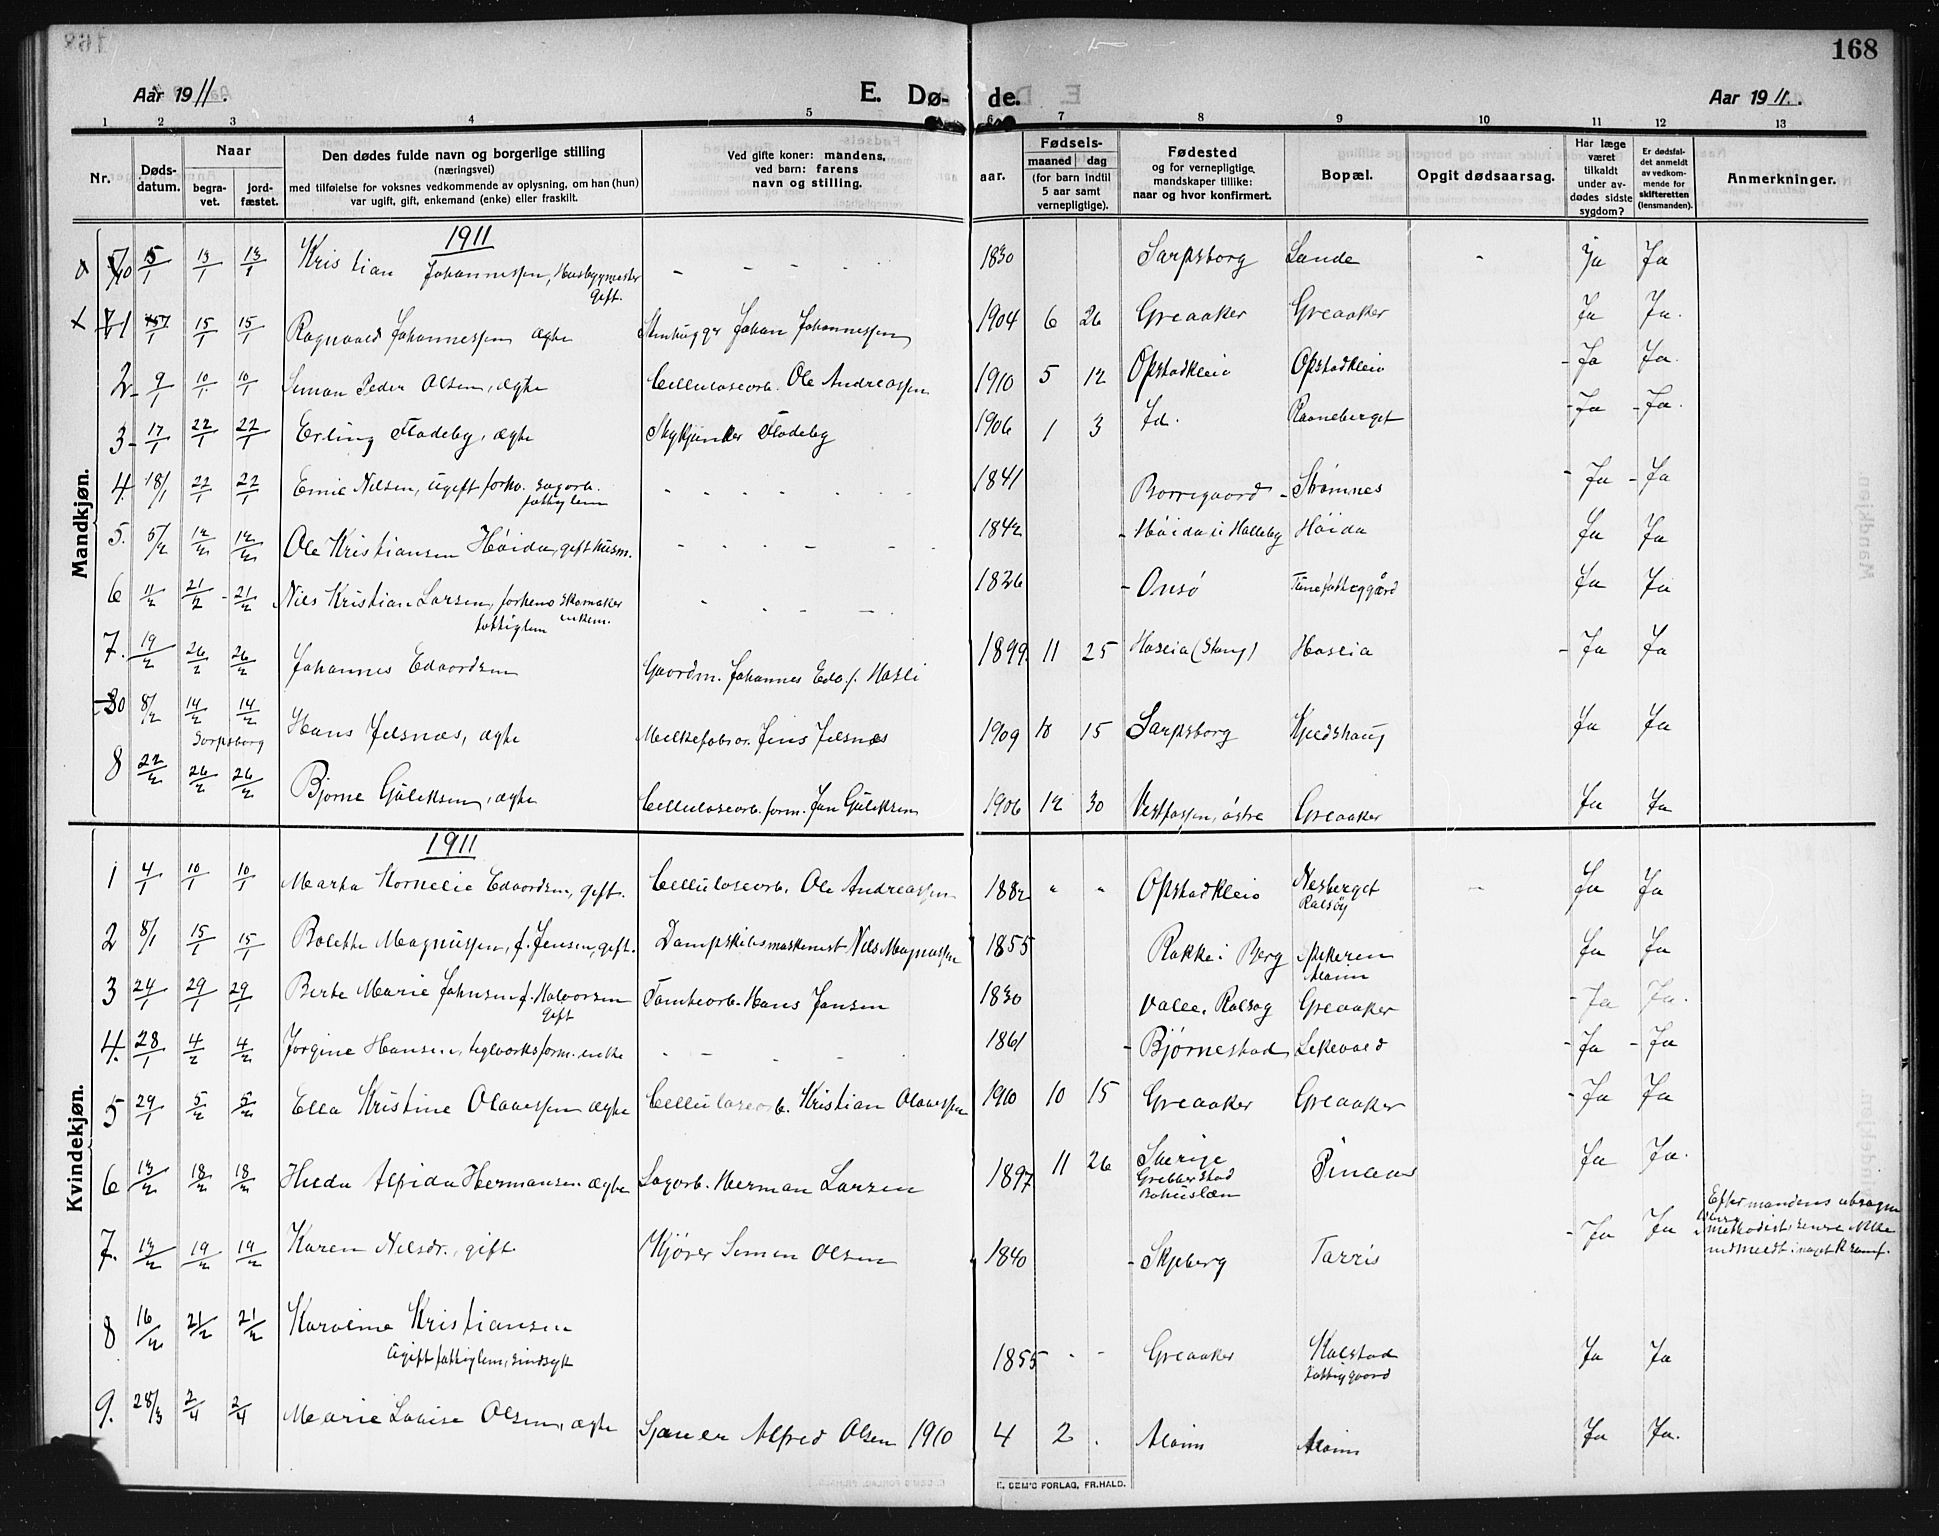 168
Aar 1911.
E. Dø- de.
Aar 1911.
1 2 3 4 5 6 7 8 9 10 11 12 13
Nr.
Døds-
datum.
Naar
begra-
vet.
jord-
fæstet.
Den dødes fulde navn og borgerlige stilling
(næringsvei)
med tilføielse for voksnes vedkommende av oplysning, om han (hun)
var ugift, gift, enkemand (enke) eller fraskilt.
Ved gifte koner: mandens,
ved barn: farens
navn og stilling.
Fødsels-
aar.
maaned dag
(for barn indtil
5 aar samt
vernepligtige).
Fødested
og for vernepligtige
mandskaper tillike:
naar og hvor konfirmert.
Bopæl.
Opgit dødsaarsag.
Har læge
været
tilkaldt
under av-
dødes sidste
sygdom?
Er dødsfal-
det anmeldt
av vedkom-
mende for
skifteretten
(lensmanden).
Anmerkninger.
Mandkjøn.
1911
5/1 13/1 13/1 Kristian Johannessen, Husbygmester - - 1830 Sarpsborg Lande - Ja Ja
Gift.
15/1 15/1 Ragnvald Johannessen ægte Stenhugger Johan Johannessen 1904 6 26 Greaaker Greaaker Ja Ja.
2 9/1 10/1 10/1 Simon Peder Olsen, ægte Cellulosearb. Ole Andreassen 1910 5 12 Opstadkleiv Opstadkleiv Ja Ja.
3 17/1 22/1 22/1 Erling Flodeby, ægte Flodeby 1906 1 3 Id. Raaneberget Ja Ja.
4. 18/1 22/1 22/1 Emil Nilsen, ugift forhv. sagarb. 1841 Borregaard Strømnes Ja Ja
fattiglem
5. 5/2 12/2 12/2 Ole Kristiansen Höida, gift husm. 1842 Höida i Halleby Höida Ja Ja
6 11/2 21/2 21/2 Nils Kristian Larsen, forhenv skomaker 1826 Onsö Tune fattiggård Ja Ja
fattiglem enkem.
7. 19/2 26/2 26/2 Johannes Edvardsen Gaardm. Johannes Edv.s. Hasli 1899 11 25 Haslia (Stang) Haslia Ja Ja
8/2 14/2 14/2 Hans Jelsnæs, ægte Jens Jelsnæs 1909 10 15 Sarpsborg Kjedshaug Ja Ja
Sarpsborg
8 22/2 26/2 26/2 Bjarne Guleksen, ægte Cellulosearb. form. Jan Guleksen 1906 12 30 Vestfossen, östre Greaaker Ja Ja
Kvindekjøn.
1911
1 4/1 10/1 10/1 Marta Kornelie Edvardsen, gift. Celluloseorb. Ole Andreassen 1882 " " Opstadkleiv Nesberget - Ja Ja
Rolsöy
2 8/1 15/1 15/1 Bolette Magnussen, f. Jensen, gift. Dampskibsmaskinist Nils Magnussen 1855 Rakke i Berg Ja Ja
Alvim
3 24/1 29/1 29/1 Berte Marie Johnsen f. Halvorsen Tomtearb. Hans Jansen 1830 Valle, Rolsøy Greaaker Ja Ja.
Gift
4. 28/1 4/2 4/2 Jørgine Hansen, teglverksform. enke - - 1861 Bjørnestad Lekevold Ja Ja
5 29/1 5/2 5/2 Ella Kristine Olavessen ægte Celluloseorb. Kristian Olavessen 1910 10 15 Greaaker Greaaker Ja Ja
6 13/2 18/2 18/2 Hulda Alfida Hermansen ægte Sagarb. Herman Larsen 1897 11 26 Sverige Ja Ja.
Grebberstad
Bohuslæn
7. 13/2 19/2 19/2 Karen Nilsdr., gift Kjører Simen Olsen 1840 Skjeberg Tarris Ja Ja
Efter mandens utsagn
methodist, senere ikke
indmeldt i noget kr. samf.
8 16/2 21/2 21/2 Karoline Kristiansen 1855 - - Greaaker Kalstad Ja Ja
Ugift fattiglem, sindsyk fattiggaard
9. 28/3 2/4 2/4 Marie Lovise Olsen, ægte Sjauer Alfred Olsen 1910 4 2 Alvim Alvim Ja Ja.
E. SEM'S FORLAG, FR.HALD.